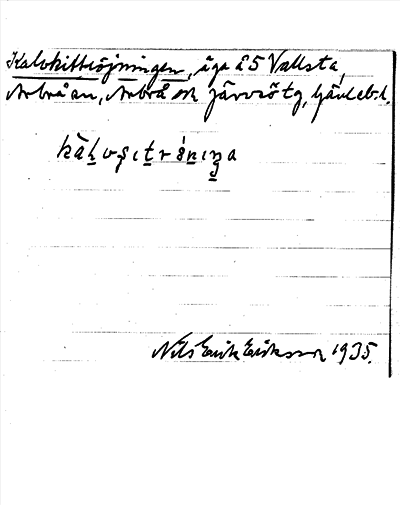 Kalvkittröjningen, äga å 5 Vallsta,
Arbråan, Arbrå sk Järvsö tg, Gävleb. l.
Nils Erik Eriksson 1935.